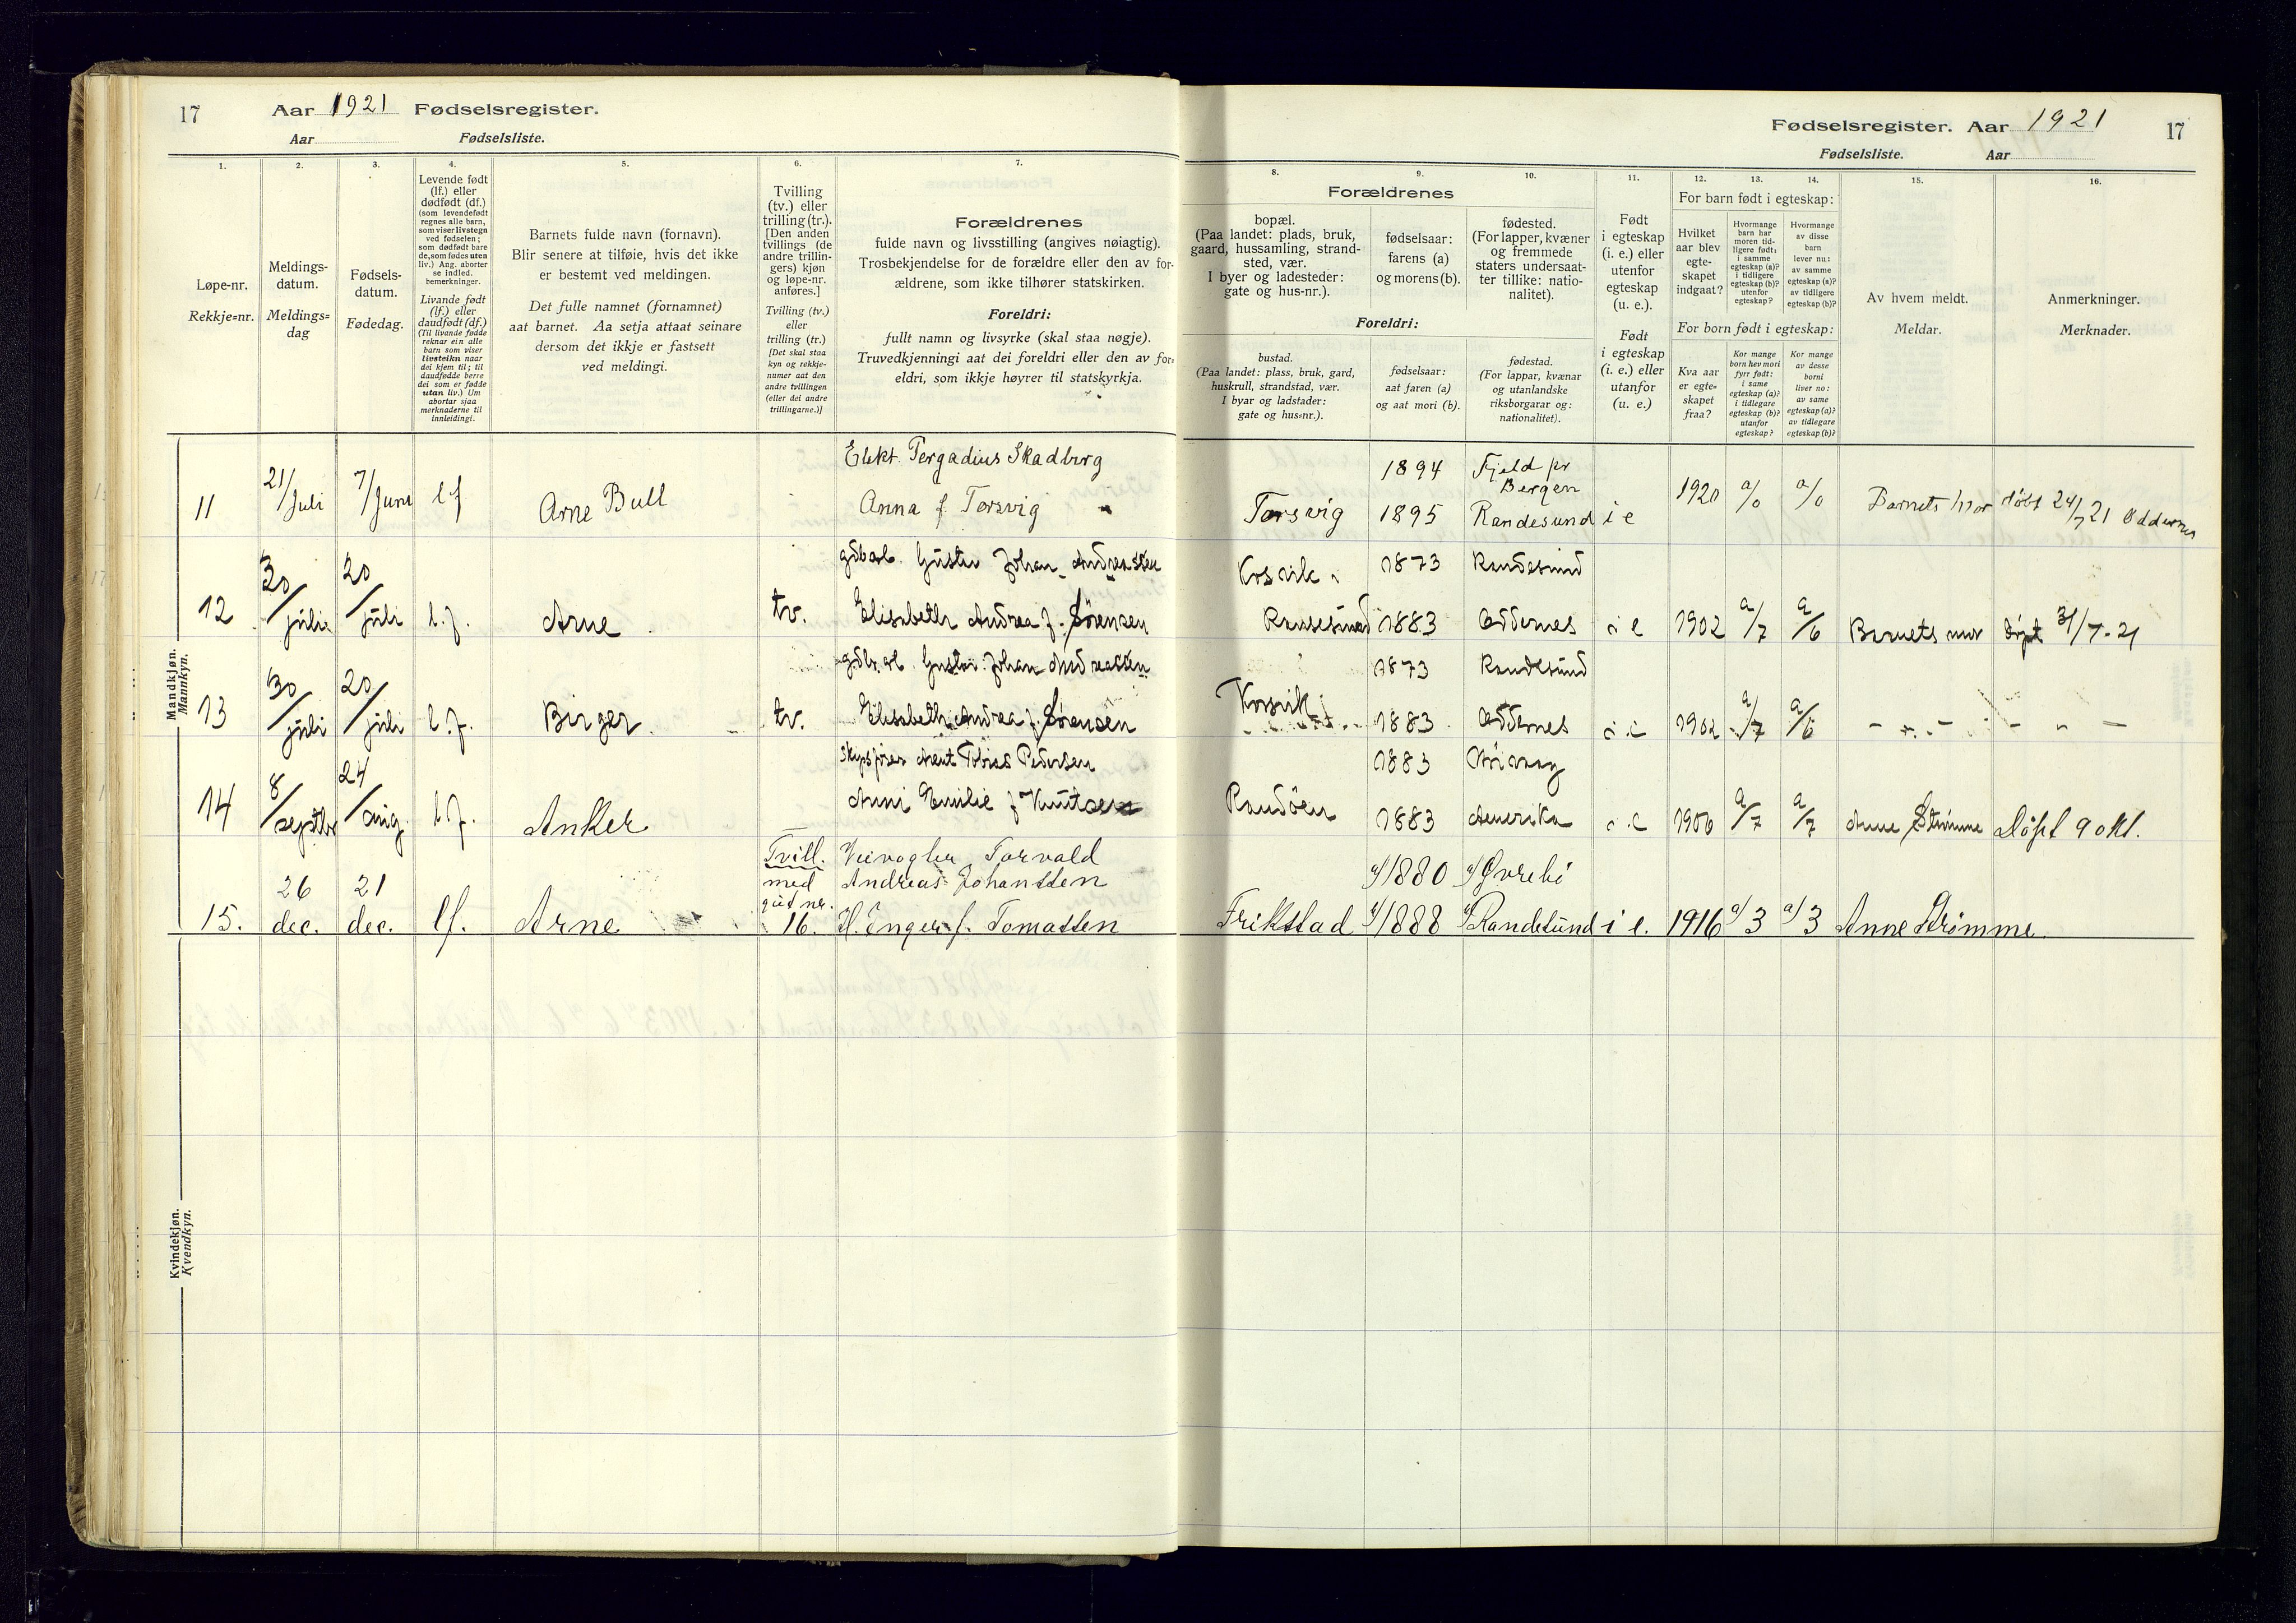 17
Aar 1921 Fødselsregister.
Aar Fødselsliste.
1. 2. 3. 4. 5. 6. 7.
Løpe-nr.
Rekkje=nr.
Meldings-
datum.
Meldings=
dag
Fødsels-
datum.
Fødedag.
Levende født
(lf.) eller
dødfødt (df.)
(som levendefødt
regnes alle barn,
som viser livstegn
ved fødselen;
som dødfødt bare
de, som fødes uten
liv.) Ang. aborter
se indled.
bemerkninger.
Livande født
(lf.) eller
daudfødt (df.)
(Til livande fødde
reknar ein alle
barn som viser
livsteikn naar
dei kjem til; til
daudfødde berre
dei som er fødde
utan liv.) Um
abortar sjaa
merknaderne til
innleidingi.
Barnets fulde navn (fornavn).
Blir senere at tilføie, hvis det ikke
er bestemt ved meldingen.
Det fulle namnet (fornamnet)
aat barnet. Aa setja attaat seinare
dersom det ikkje er fastsett
ved meldingi.
Tvilling
(tv.) eller
trilling (tr.).
[Den anden
tvillings (de
andre trillin-
gers) kjøn
og løpe-nr.
anføres.]
Tvilling (tv.)
eller
trilling (tr.)
[Det skal staa
kyn og rekkje-
numer aat den
andre tvillingen
(eller dei andre
trillingarne.)]
Forældrenes
fulde navn og livsstilling (angives nøiagtig).
Trosbekjendelse for de forældre eller den av for-
ældrene, som ikke tilhører statskirken.
Foreldri:
fullt namn og livsyrke (skal staa nøgje).
Truvedkjenningi aat dei foreldri eller den av for=
eldri, som ikkje høyrer til statskyrkja.
Mandkjøn.
Mannkyn.
11 21/Juli 7/Juni lf Arne Bull
Elekt. Pergadius Skadberg
Anna f. Torsvig
12 30/juli 20/juli l.f. Arne tv.
gdbr.arb. Gustav Johan Andreassen
Elisabeth Andrea f. Sørensen
13 30/juli 20/juli l.f. Birger tv.
gdbr.arb. Gustav Johan Andreassen
Elisabeth Andrea f. Sørensen
14 8/septbr 24/aug. l.f. Anker
Skipsfører Arent Tobias Pedersen
Anni Emilie f Knutsen
15. 26 dec. 21 dec. lf. Arne
Tvill.
med
gut nr.
16.
Veivogter Torvald
Andreas Johanssen
H. Inger f. Tomassen
Kvindekjøn.
Kvendkyn.
Fødselsregister. Aar 1921 17
Fødselsliste. Aar
8. 9. 10. 11. 12. 13. 14. 15. 16.
Forældrenes
bopæl.
(Paa landet: plads, bruk,
gaard, hussamling, strand-
sted, vær.
I byer og ladesteder:
gate og hus-nr.).
fødselsaar:
farens (a)
og morens (b).
fødested.
(For lapper, kvæner
og fremmede
staters undersaat-
ter tillike: natio-
nalitet).
Foreldri:
bustad.
(Paa landet: plass, bruk, gard,
huskrull, strandstad, vær.
I byar og ladstader:
gate og hus=nr.).
fødselsaar:
aat faren (a)
og aat mori (b).
fødestad.
(For lappar, kvænar
og utanlandske
riksborgarar og:
nationalitet).
Født
i egteskap
(i. e.) eller
utenfor
egteskap
(u. e.).
Født
i egteskap
(i. e.) eller
utanfor
(u. e.)
For barn født i egteskap:
Hvilket
aar blev
egte-
skapet
indgaat?
Hvormange
barn har
moren tid-
ligere født:
i samme
egteskap (a)?
i tidligere
egteskap (b)?
utenfor
egteskap?
Hvormange
av disse
barn
lever nu:
av samme
egteskap (a)?
av tidligere
egteskap (b)?
For born født i egteskap:
Kva aar
er egte-
skapet
fraa?
Kor mange
born hev mori
fyrr født:
i same
egteskap (a)?
i tidlegare
egteskap (b)?
utanfor
egteskap?
Kor mange
av desse
borni
liver no:
av same
egteskap (a)?
av tidlegare
egteskap (b)?
Av hvem meldt.
Meldar.
Anmerkninger.
Merknader.
1894 Fjeld pr
Bergen
Torsvig 1895 Randesund i e 1920 a/0 a/0 Barnets mor døbt 24/7 21 Oddernes
Korsvik 1873 Randesund
Randesund 1883 Oddernes i e 1902 a/7 a/6 Barnets mor døpt 31/7-21
1873 Randesund
Korsvik 1883 Oddernes i e 1902 a/7 a/6 - " - - " -
1883
Randøen 1883 Amerika i e 1906 a/7 a/7 Anne Strømme Døpt 9 okt.
a/1880 a/Øvrebø
Frikstad b/1888 b/Randesund i e. 1916 a/3 a/3 Anne Strømme